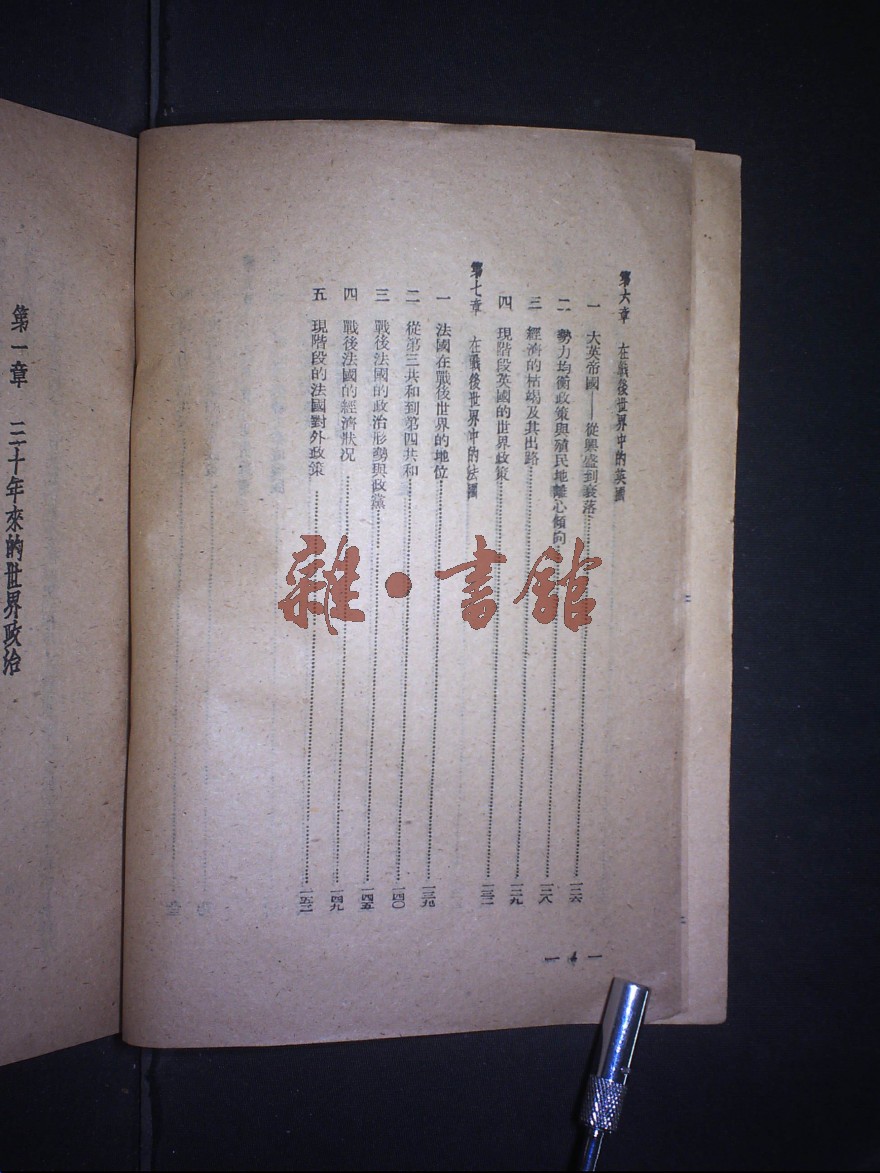 第六章　在戰後世界中的英國
一　大英帝國——從興盛到衰落……一二六
二　勢力均衡政策與殖民地離心傾向……一二八
三　經濟的枯竭及其出路……一二九
四　現階段英國的世界政策……一三二
第七章　在戰後世界中的法國
一　法國在戰後世界的地位……一三九
二　從第三共和到第四共和……一四〇
三　戰後法國的政治形勢與政黨……一四五
四　戰後法國的經濟狀况……一四九
五　現階段的法國對外政策……一五二
第一章　三十年來的世界政治
雜·書館